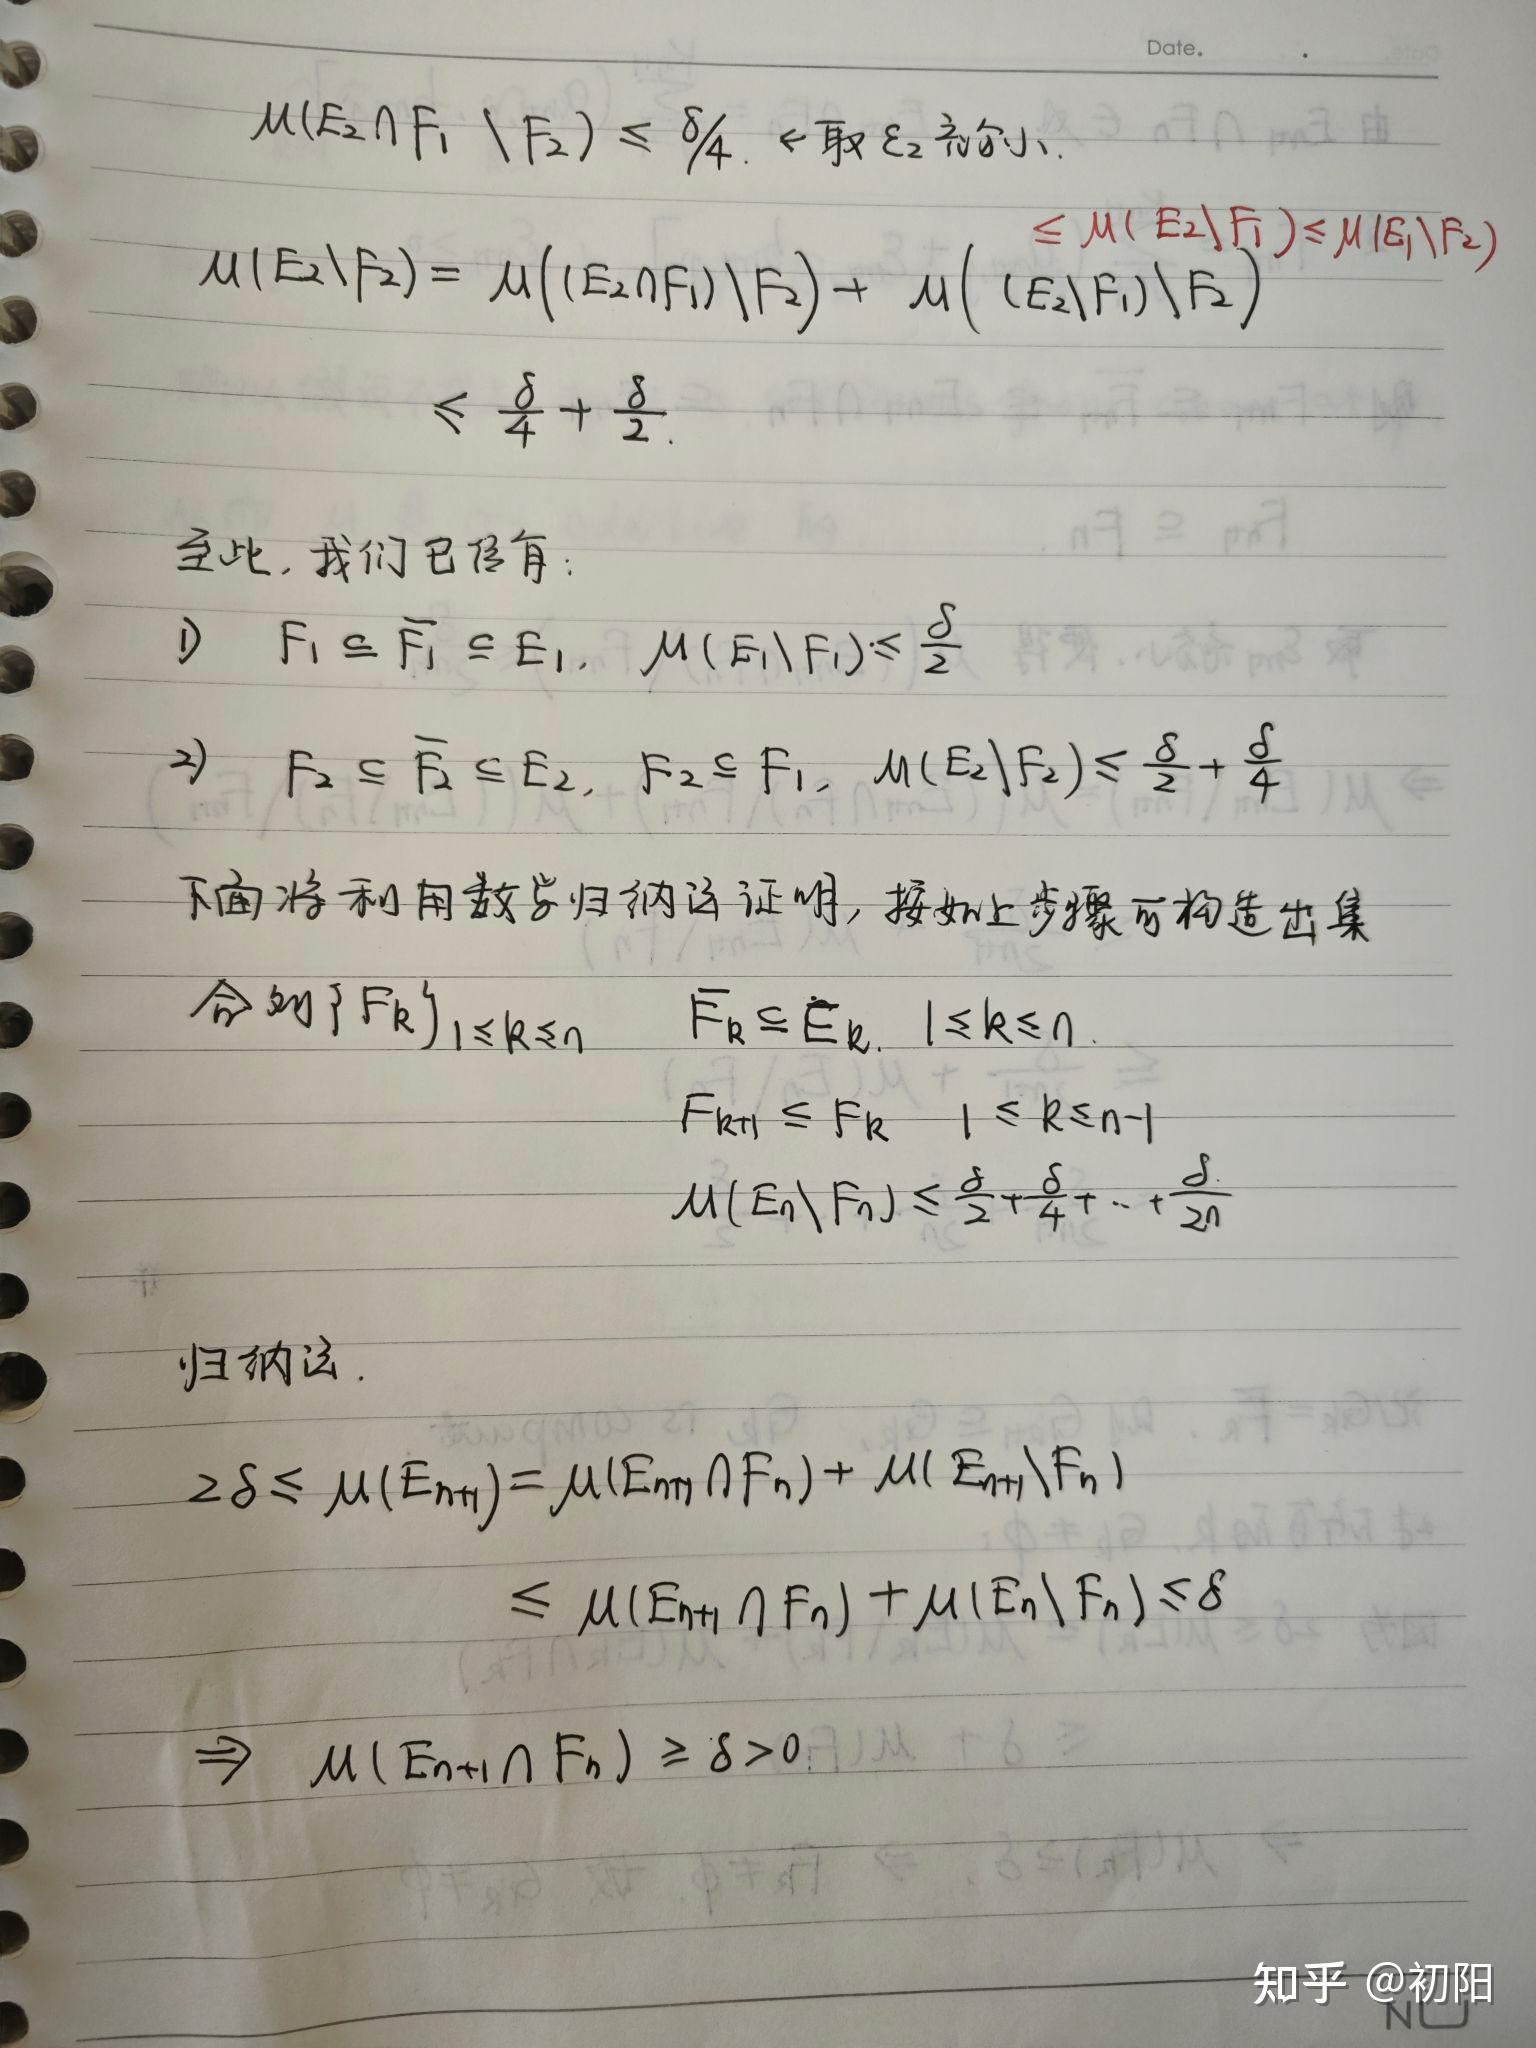 Date. .
μ(E₂∩F₁ \ F₂) ≤ δ/4. ← 取 ε₂ 充分小.
≤ μ(E₂\F₁) ≤ μ(E₁\F₂)
μ(E₂\F₂) = μ((E₂∩F₁)\F₂) + μ((E₂\F₁)\F₂)
≤ δ/4 + δ/2.
至此, 我们已经有:
1) F₁ ⊆ F̄₁ ⊆ E₁, μ(E₁\F₁) ≤ δ/2
2) F₂ ⊆ F̄₂ ⊆ E₂, F₂ ⊆ F₁, μ(E₂\F₂) ≤ δ/2 + δ/4
下面将利用数学归纳法证明, 按如上步骤可构造出集
合列{F_k}_{1≤k≤n} F̄_k ⊆ E_k. 1≤k≤n.
F_{k+1} ⊆ F_k 1≤k≤n-1
μ(E_n\F_n) ≤ δ/2 + δ/4 + ‥ + δ/2n
归纳法.
2δ ≤ μ(E_{n+1}) = μ(E_{n+1}∩F_n) + μ(E_{n+1}\F_n)
≤ μ(E_{n+1}∩F_n) + μ(E_n\F_n) ≤ δ
⇒ μ(E_{n+1}∩F_n) ≥ δ > 0.
知乎 @初阳